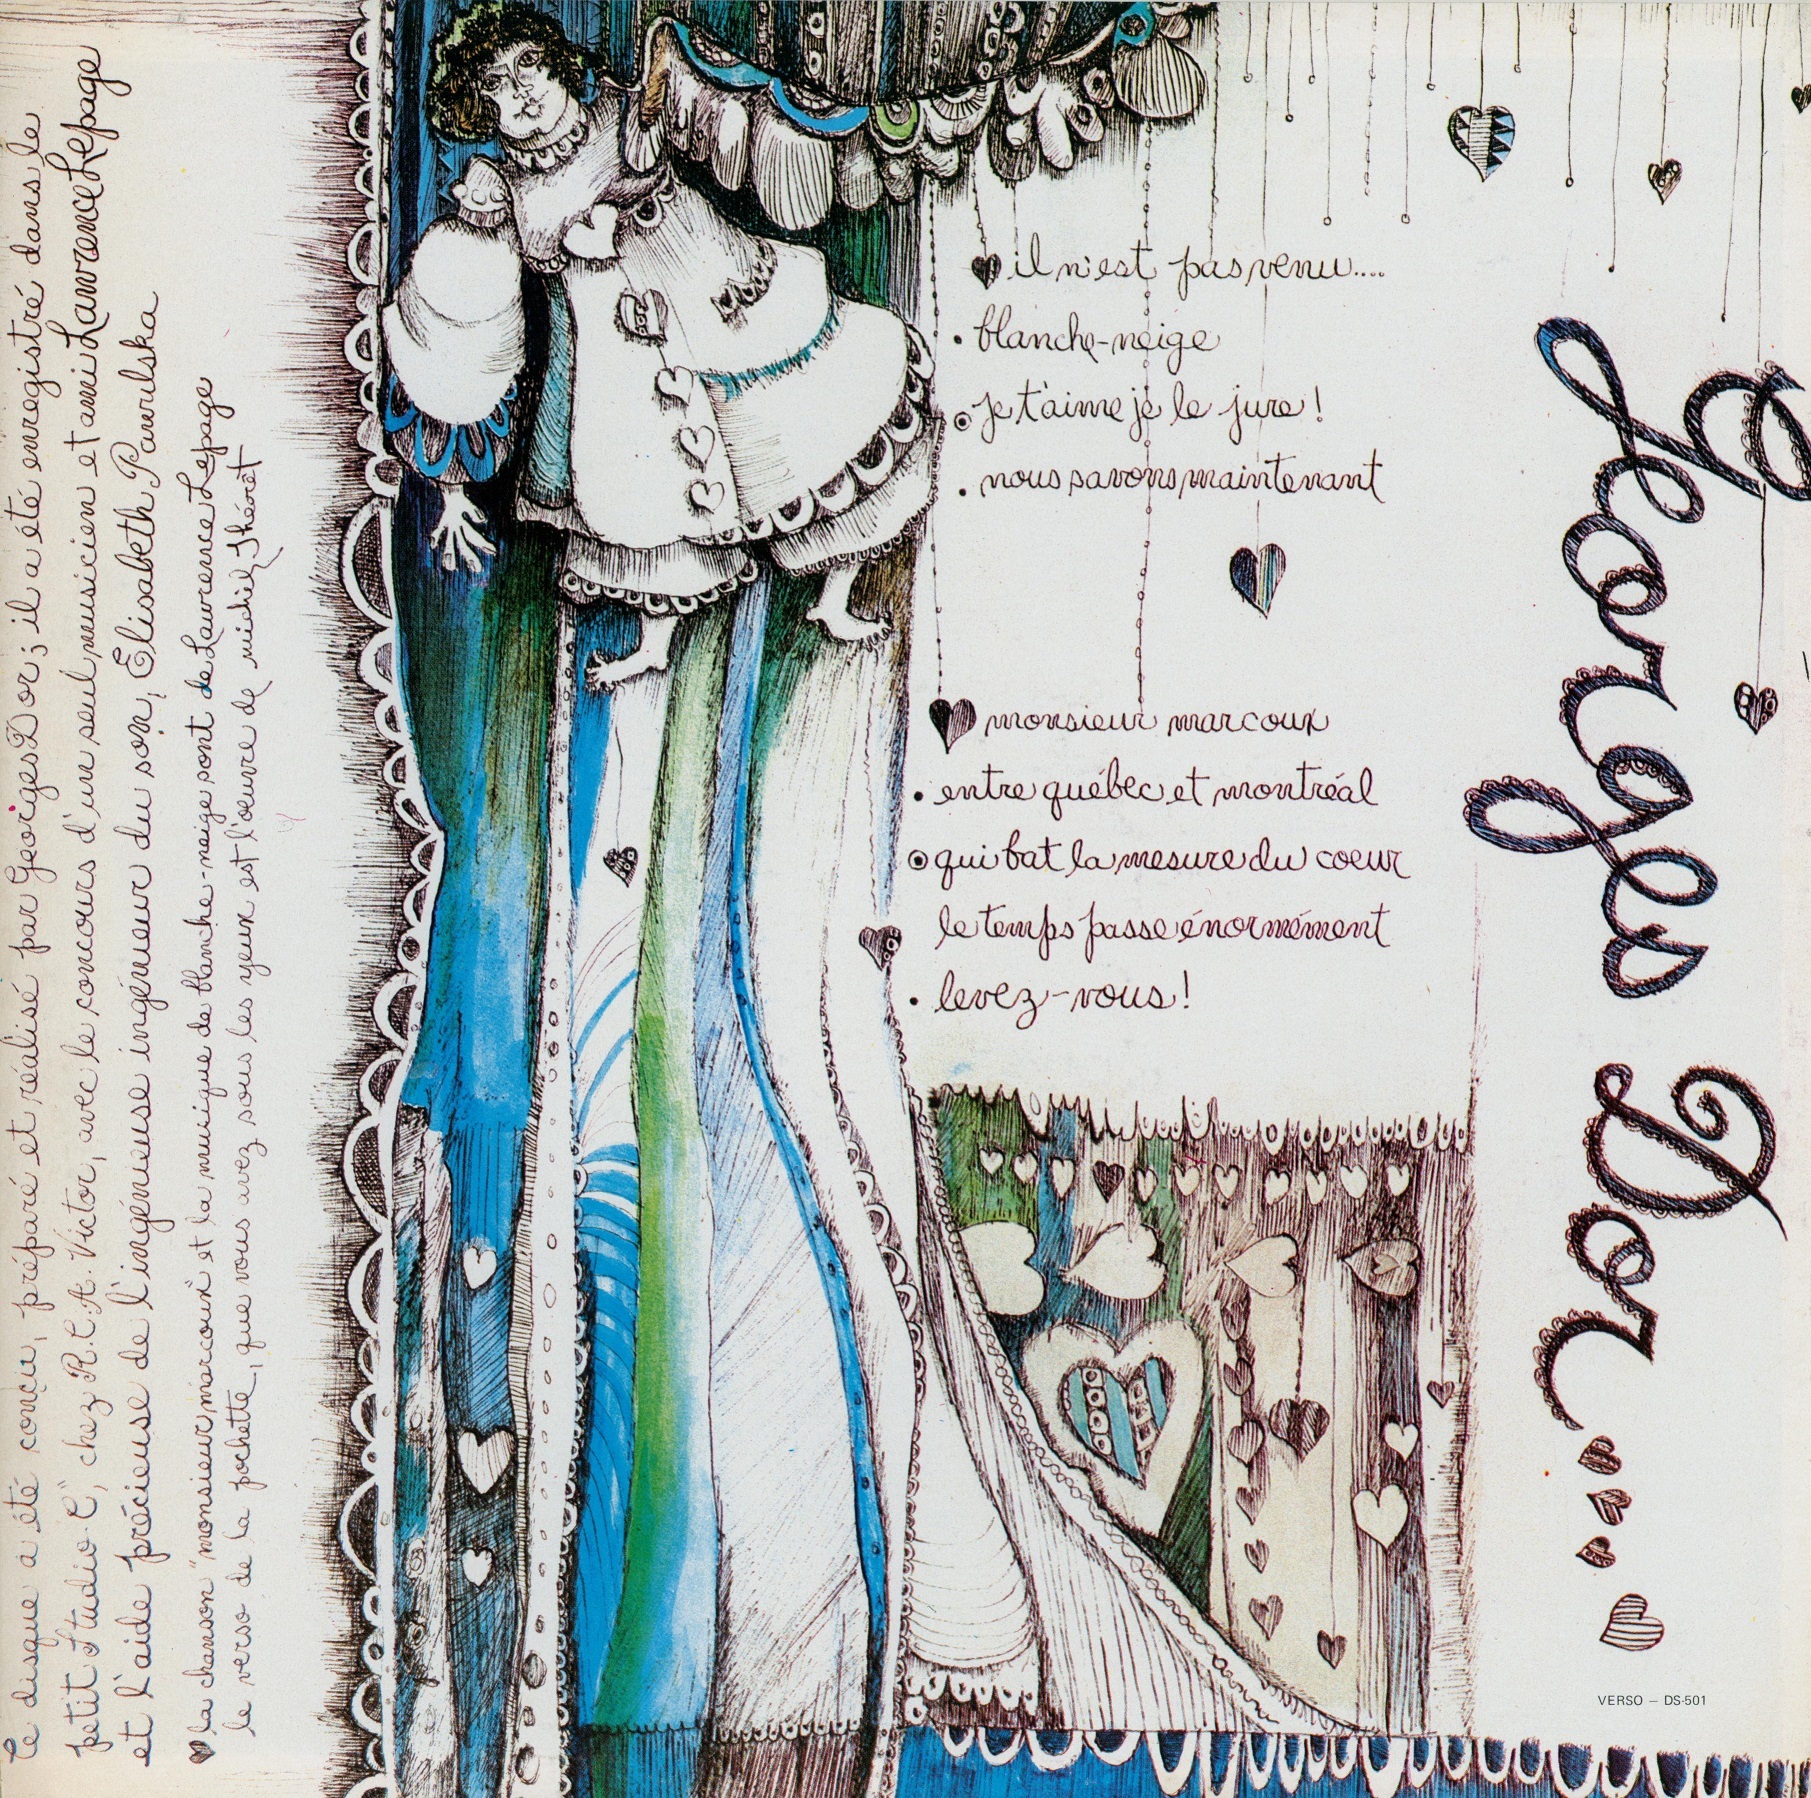 ce disque a été conçu, préparé et réalisé par Georges Dor; il a été enregistré dans le
petit Studio "C", chez R.C.A. Victor, avec le concours d'un seul musicien et ami Lawrence Lepage
et l'aide précieuse de l'ingénieuse ingénieur du son, Elisabeth Pawilska
la chanson "monsieur marcoux" et la musique de blanche-neige sont de Lawrence Lepage
le verso de la pochette, que vous avez sous les yeux est l'œuvre de michel Théret
il n'est pas venu....
• blanche-neige
je t'aime je le jure!
• nous savons maintenant
monsieur marcoux
• entre québec et montréal
qui bat la mesure du coeur
le temps passe énormément
• levez-vous!
Georges Dor
VERSO — DS-501